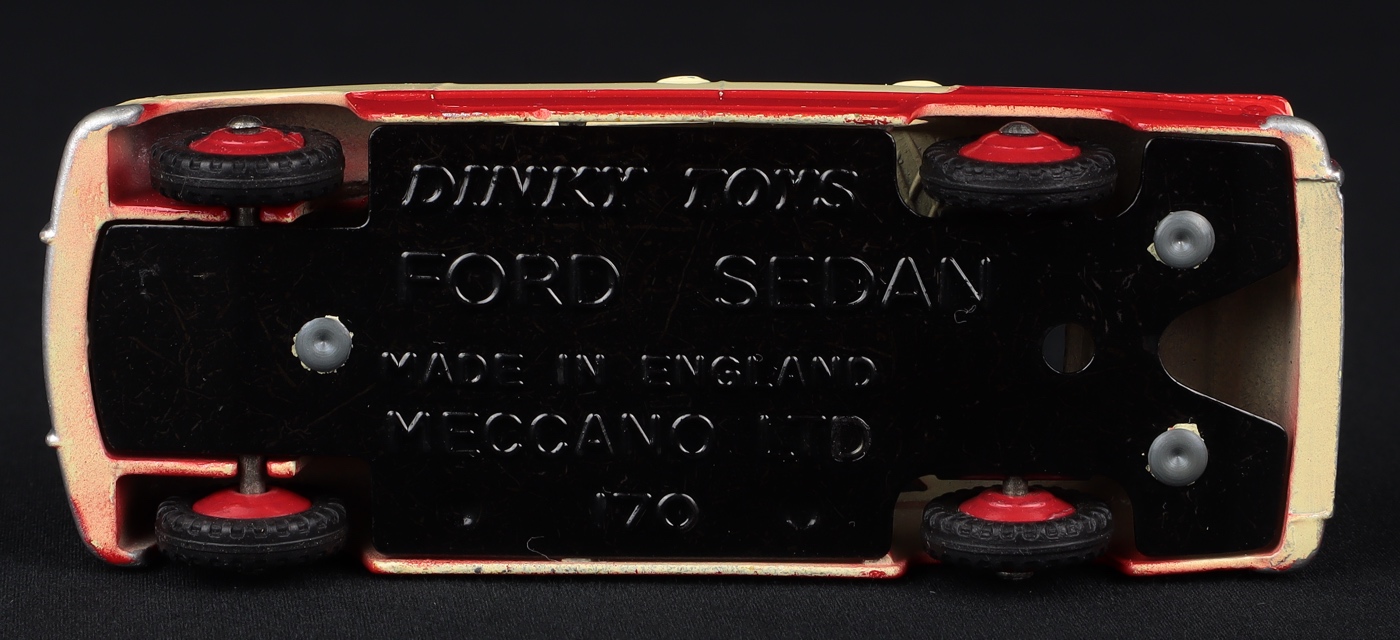 DINKY TOYS
FORD SEDAN
MADE IN ENGLAND
MECCANO LTD
170